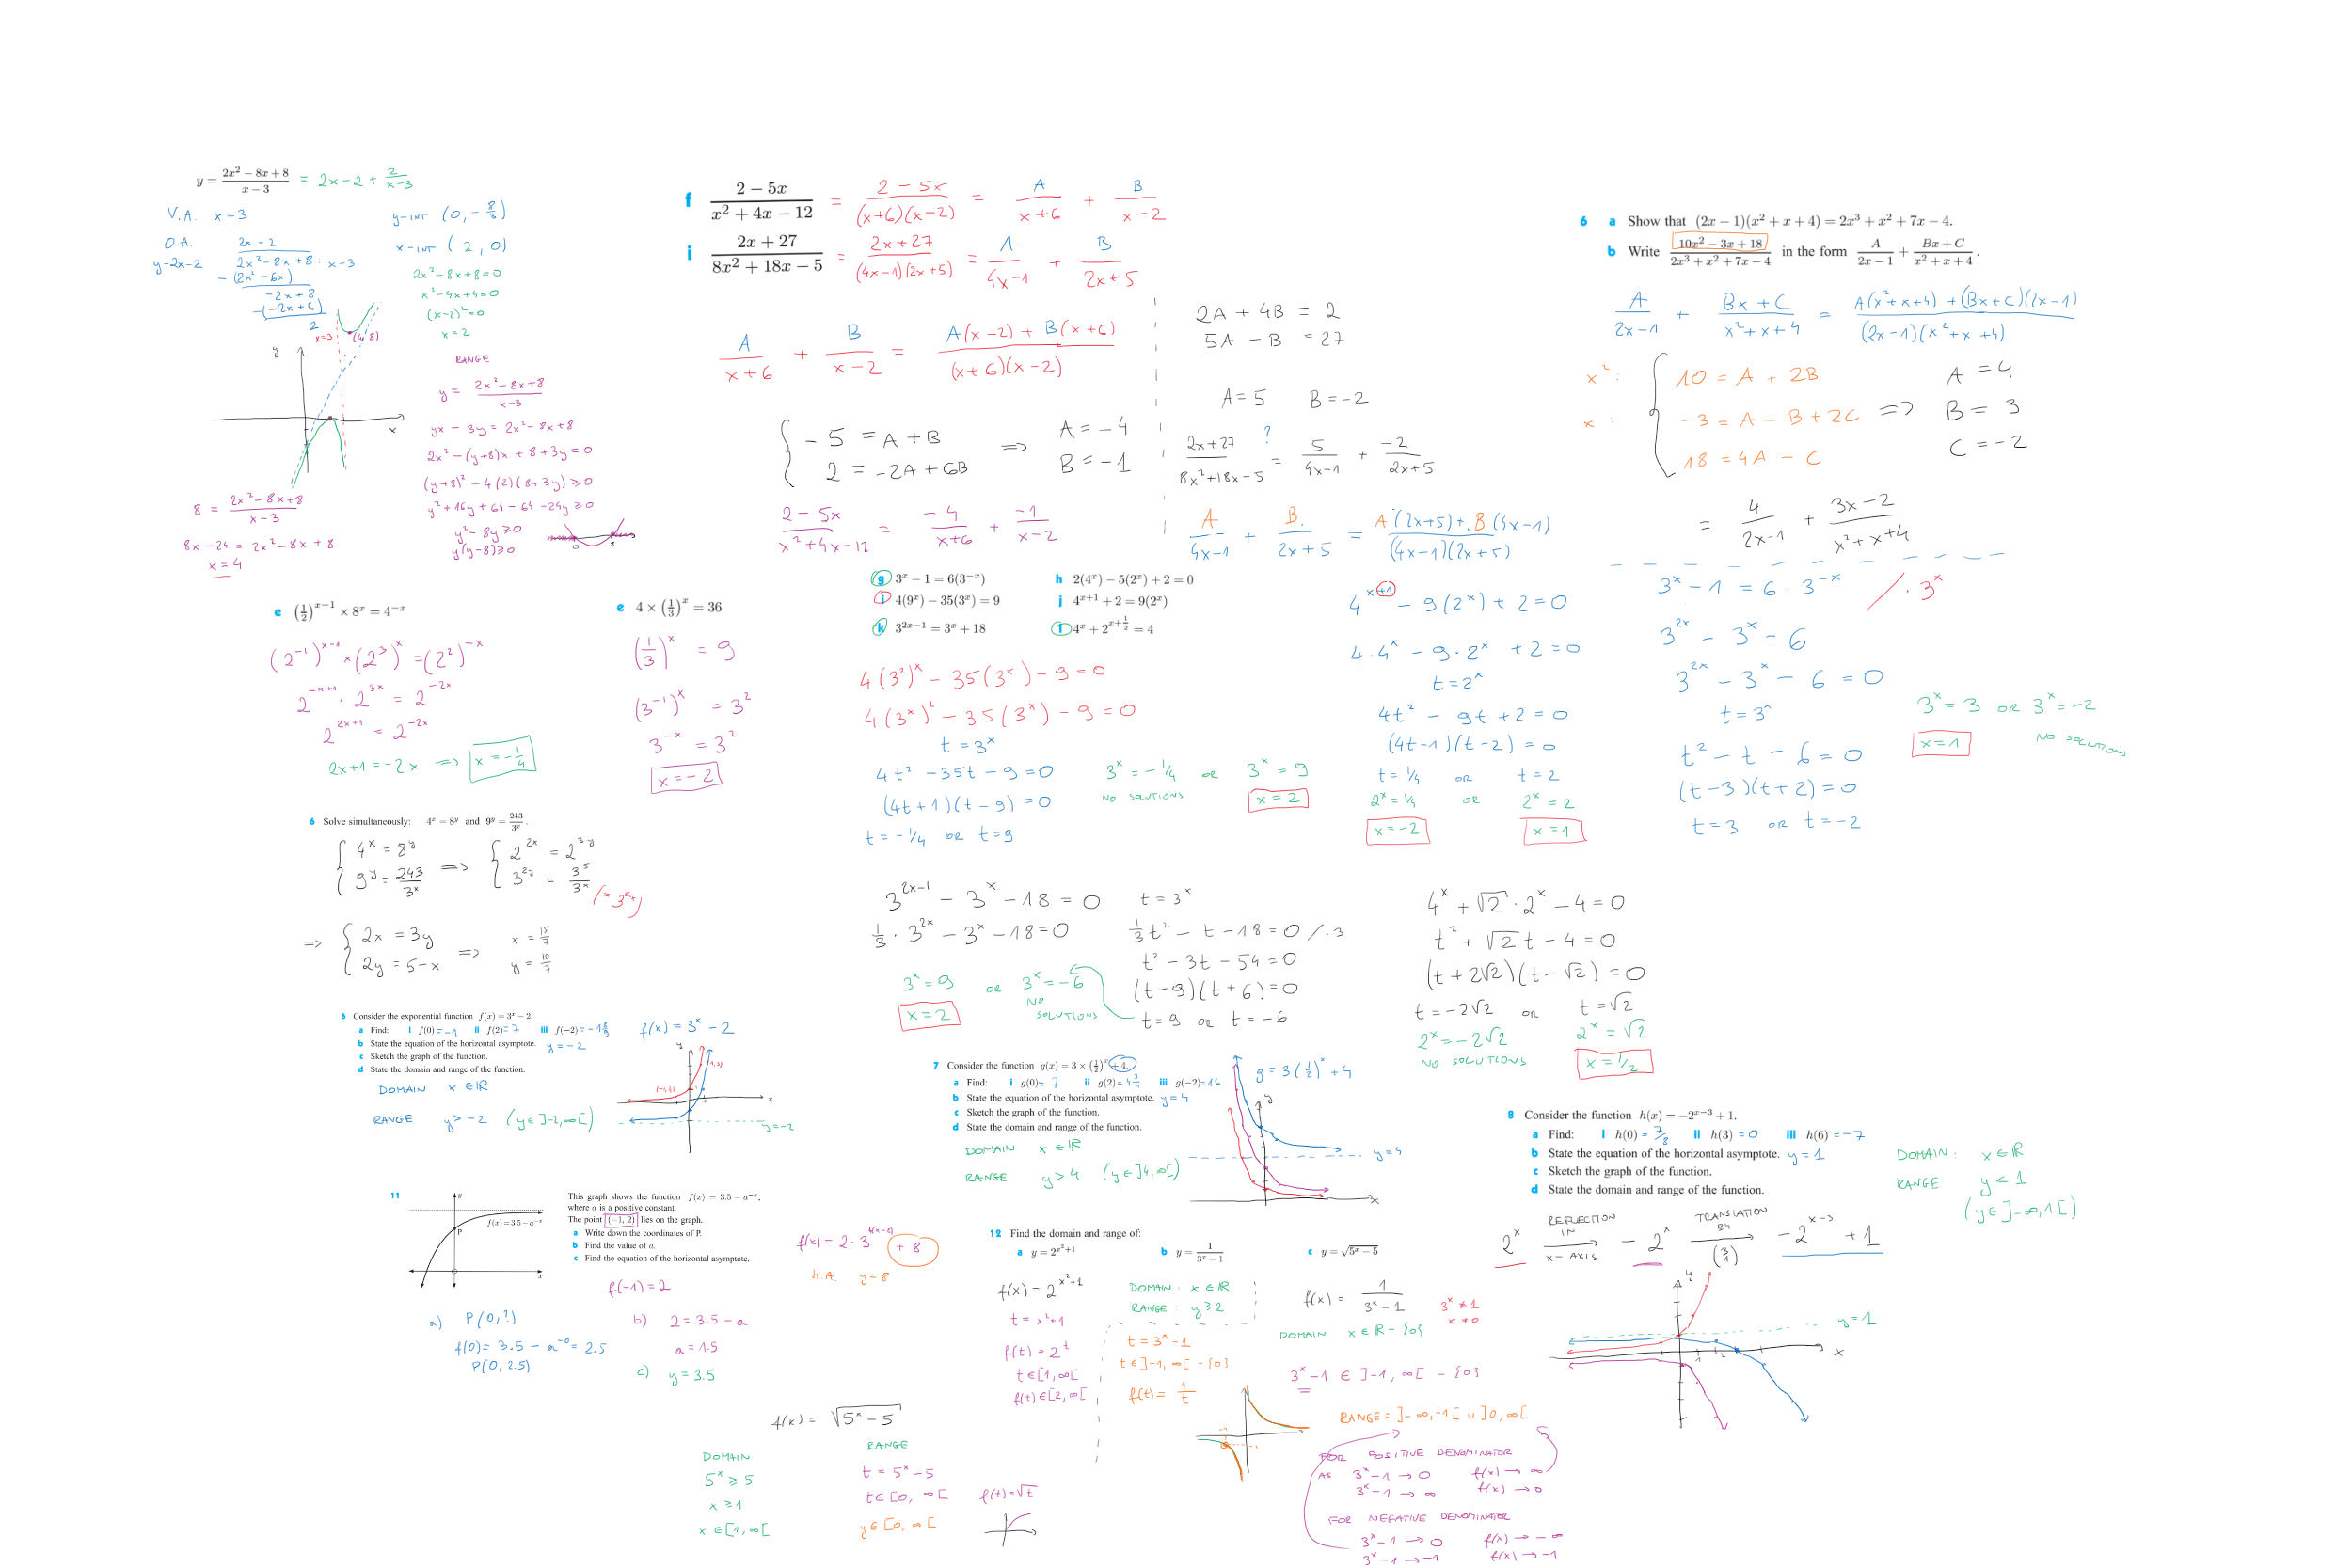 y = (2x² − 8x + 8)/(x − 3) = 2x−2 + 2/(x−3)
V.A. x = 3
y-INT (0, −8/3)
O.A.
y=2x−2
2x − 2
2x² − 8x + 8 : x−3
−(2x² − 6x)
−2x + 8
−(−2x + 6)
2
x-INT (2, 0)
2x² − 8x + 8 = 0
x² − 4x + 4 = 0
(x−2)² = 0
x = 2
x=3
(4, 8)
y
x
RANGE
y = (2x² − 8x + 8)/(x−3)
yx − 3y = 2x² − 8x + 8
2x² − (y+8)x + 8 + 3y = 0
(y+8)² − 4(2)(8+3y) ≥ 0
y² + 16y + 64 − 64 − 24y ≥ 0
y² − 8y ≥ 0
y(y−8) ≥ 0
0 8
8 = (2x² − 8x + 8)/(x−3)
8x − 24 = 2x² − 8x + 8
x = 4
f (2 − 5x)/(x² + 4x − 12) = (2 − 5x)/((x+6)(x−2)) = A/(x+6) + B/(x−2)
i (2x + 27)/(8x² + 18x − 5) = (2x+27)/((4x−1)(2x+5)) = A/(4x−1) + B/(2x+5)
A/(x+6) + B/(x−2) = (A(x−2) + B(x+6))/((x+6)(x−2))
{ −5 = A + B
2 = −2A + 6B
=> A = −4
B = −1
(2 − 5x)/(x² + 4x − 12) = −4/(x+6) + −1/(x−2)
2A + 4B = 2
5A − B = 27
A = 5 B = −2
(2x+27)/(8x²+18x−5) =? 5/(4x−1) + −2/(2x+5)
A/(4x−1) + B/(2x+5) = (A·(2x+5) + B(4x−1))/((4x−1)(2x+5))
6 a Show that (2x − 1)(x² + x + 4) = 2x³ + x² + 7x − 4.
b Write (10x² − 3x + 18)/(2x³ + x² + 7x − 4) in the form A/(2x − 1) + (Bx + C)/(x² + x + 4).
A/(2x−1) + (Bx + C)/(x²+x+4) = (A(x²+x+4) + (Bx+C)(2x−1))/((2x−1)(x²+x+4))
x²: { 10 = A + 2B
x: −3 = A − B + 2C
18 = 4A − C
=> A = 4
B = 3
C = −2
= 4/(2x−1) + (3x−2)/(x²+x+4)
e (1/2)^(x−1) × 8^x = 4^(−x)
(2^−1)^(x−1) × (2^3)^x = (2^2)^−x
2^(−x+1) · 2^(3x) = 2^(−2x)
2^(2x+1) = 2^(−2x)
2x+1 = −2x => x = −1/4
e 4 × (1/3)^x = 36
(1/3)^x = 9
(3^−1)^x = 3²
3^−x = 3²
x = −2
g 3^x − 1 = 6(3^−x)
h 2(4^x) − 5(2^x) + 2 = 0
i 4(9^x) − 35(3^x) = 9
j 4^(x+1) + 2 = 9(2^x)
k 3^(2x−1) = 3^x + 18
l 4^x + 2^(x+1/2) = 4
4(3²)^x − 35(3^x) − 9 = 0
4(3^x)² − 35(3^x) − 9 = 0
t = 3^x
4t² − 35t − 9 = 0
(4t+1)(t−9) = 0
t = −1/4 OR t = 9
3^x = −1/4 OR 3^x = 9
NO SOLUTIONS
x = 2
4^(x+1) − 9(2^x) + 2 = 0
4·4^x − 9·2^x + 2 = 0
t = 2^x
4t² − 9t + 2 = 0
(4t−1)(t−2) = 0
t = 1/4 OR t = 2
2^x = 1/4 OR 2^x = 2
x = −2
x = 1
3^x − 1 = 6·3^−x /·3^x
3^(2x) − 3^x = 6
3^(2x) − 3^x − 6 = 0
t = 3^x
t² − t − 6 = 0
(t−3)(t+2) = 0
t = 3 OR t = −2
3^x = 3 OR 3^x = −2
x = 1
NO SOLUTIONS
6 Solve simultaneously: 4^x = 8^y and 9^y = 243/3^x.
{ 4^x = 8^y
9^y = 243/3^x
=> { 2^(2x) = 2^(3y)
3^(2y) = 3^5/3^x
(= 3^(5−x))
=> { 2x = 3y
2y = 5−x
=> x = 15/7
y = 10/7
3^(2x−1) − 3^x − 18 = 0
t = 3^x
1/3 · 3^(2x) − 3^x − 18 = 0
1/3 t² − t − 18 = 0 /·3
t² − 3t − 54 = 0
(t−9)(t+6) = 0
t = 9 OR t = −6
3^x = 9 OR 3^x = −6
NO SOLUTIONS
x = 2
4^x + √2·2^x − 4 = 0
t² + √2 t − 4 = 0
(t + 2√2)(t − √2) = 0
t = −2√2 OR t = √2
2^x = −2√2
2^x = √2
NO SOLUTIONS
x = 1/2
6 Consider the exponential function f(x) = 3^x − 2.
a Find: i f(0) = −1 ii f(2) = 7 iii f(−2) = −1 8/9
b State the equation of the horizontal asymptote. y = −2
c Sketch the graph of the function.
d State the domain and range of the function.
DOMAIN x ∈ ℝ
RANGE y > −2 (y ∈ ]−2, ∞[)
f(x) = 3^x − 2
y
x
y = −2
7 Consider the function g(x) = 3 × (1/2)^x + 4.
a Find: i g(0) = 7 ii g(2) = 4 3/4 iii g(−2) = 16
b State the equation of the horizontal asymptote. y = 4
c Sketch the graph of the function.
d State the domain and range of the function.
DOMAIN x ∈ ℝ
RANGE y > 4 (y ∈ ]4, ∞[)
g = 3(1/2)^x + 4
y
y = 4
x
8 Consider the function h(x) = −2^(x−3) + 1.
a Find: i h(0) = 7/8 ii h(3) = 0 iii h(6) = −7
b State the equation of the horizontal asymptote. y = 1
c Sketch the graph of the function.
d State the domain and range of the function.
DOMAIN: x ∈ ℝ
RANGE y < 1
(y ∈ ]−∞, 1[)
2^x REFLECTION IN x-AXIS → −2^x TRANSLATION BY (3 1) → −2^(x−3) + 1
y
y = 1
x
11
y
f(x) = 3.5 − a^−x
P
x
This graph shows the function f(x) = 3.5 − a^−x,
where a is a positive constant.
The point (−1, 2) lies on the graph.
a Write down the coordinates of P.
b Find the value of a.
c Find the equation of the horizontal asymptote.
f(−1) = 2
a) P(0, ?)
f(0) = 3.5 − a^−0 = 2.5
P(0, 2.5)
b) 2 = 3.5 − a
a = 1.5
c) y = 3.5
f(x) = 2·3^(4(x−2)) + 8
H.A. y = 8
12 Find the domain and range of:
a y = 2^(x²+1)
b y = 1/(3^x − 1)
c y = √(5^x − 5)
f(x) = 2^(x²+1)
t = x²+1
f(t) = 2^t
t ∈ [1, ∞[
f(t) ∈ [2, ∞[
DOMAIN: x ∈ ℝ
RANGE: y ≥ 2
f(x) = 1/(3^x − 1)
3^x ≠ 1
x ≠ 0
DOMAIN x ∈ ℝ − {0}
t = 3^x − 1
t ∈ ]−1, ∞[ − {0}
f(t) = 1/t
3^x − 1 ∈ ]−1, ∞[ − {0}
RANGE = ]−∞, −1[ ∪ ]0, ∞[
FOR POSITIVE DENOMINATOR
AS 3^x − 1 → 0 f(x) → ∞
3^x − 1 → ∞ f(x) → 0
FOR NEGATIVE DENOMINATOR
3^x − 1 → 0 f(x) → −∞
3^x − 1 → −1 f(x) → −1
f(x) = √(5^x − 5)
DOMAIN
5^x ≥ 5
x ≥ 1
x ∈ [1, ∞[
RANGE
t = 5^x − 5
t ∈ [0, ∞[
y ∈ [0, ∞[
f(t) = √t